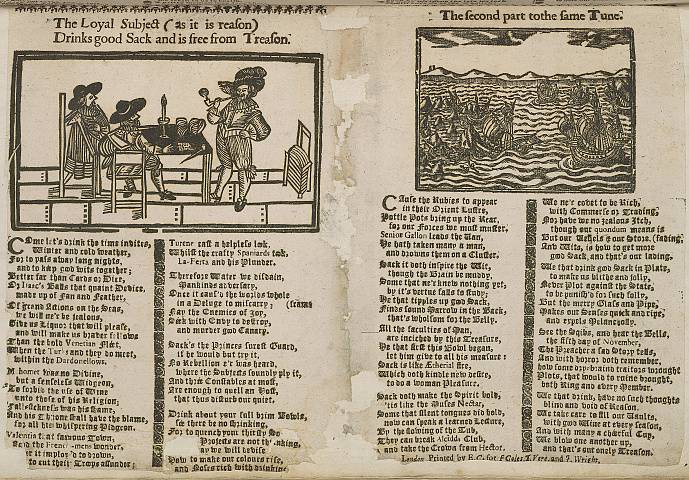 The Loyal Subject (as it is reason)
Drinks good Sack and is free from Treason.
Come let's drink the time invites,
Winter and cold weather,
For to pass away long nights,
and to keep good wits together;
Better far than Cards or Dice,
Or Isaac's Balls that quaint Device,
made up of Fan and Feather,
Of Grand Actions on the Seas,
we will ne'r be jealous,
Give us Liquor that will please,
and will make us braver fellows
Than the bold Venetian Fleet,
When the Turks and they do meet,
within the Dardonellows.
Mahomet was no Divine,
but a senseless Widgeon,
To forbid the use of Wine
unto those of his Religion;
Fallsickness was his shame,
And his Throne shall have the blame,
for all his whispering Pidgeon.
Valentia that famous Town,
the French-mens wonder,
it imploy'd to drown,
to cut their Troops assunder;
Turene cast a helpless look,
Whilst the crafty Spaniards took
La-Ferta and his Plunder.
Therefore Water we disdain,
Mankinds adversary,
Once it caus'd the worlds whole
in a Deluge to miscarry;
Nay the Enemies of Joy,
Seek with Envy to destroy,
and murder good Canary.
Sack's the Princes surest Guard,
if he would but try it,
No Rebellion e'r was heard,
where the Subjects soundly ply it,
And three Constables at most,
Are enough to quell an Host,
that thus disturb our quiet.
Drink about your full brim Bowls,
see there be no shrinking,
For to quench your thirsty
Projects are not thinking,
ay we will devise
How to make our colours rise,
and Noses rich with drinking.
The second part to the same Tune.
Cause the Rubies to appear
in their Orient Lustre,
Pottle Pots bring up the Rear,
for our Forces we must muster,
Senior Gallon leads the Van,
He hath taken many a man,
and drowns them on a Cluster.
Sack it doth inspire the Wit,
though the Brain be muddy,
Some that ne'r knows nothing yet,
by it's vertue falls to study;
He that tipples up good Sack,
Finds sound Marrow in the Back,
that's wholsom for the Body.
All the faculties of Man,
are inriched by this Treasure,
He that first this Bowl began,
let him give to all his measure:
Sack is like Etherial fire,
Which doth kindle new desire,
to do a woman Pleasure.
Sack doth make the Spirit bold,
'tis like the Muses Nectar,
Some that silent tongues did hold,
now can speak a learned Lecture,
By the flowing of the Tub,
They can break Alcides Club,
and take the Crown from Hector.
We ne'r covet to be Rich,
with Commerse or Trading,
Nor have we no zealous Itch,
though our quondum means is fading:
But our Vessels & our Store,
And Wits, is how to get more
good Sack, and that's our lading.
We that drink good Sack in Plate,
to make us blithe and jolly,
Never Plot against the State,
to be punish'd for such folly,
But the merry Glass and Pipe,
Makes our Senses quick and ripe,
and expels Melancholly.
See the Sights, and hear the Bells,
the fifth day of November,
The Preacher a sad Story tells,
And with horror doth remember,
how some dry-braind traitors wrought
Plots, that would to ruine brought,
both King and every Member.
We that drink, have no such thoughts
blind and void of Reason.
We take care to fill our Vaults,
with good Wine at every season,
And with many a chearful Cup,
We blow one another up,
and that's our onely Treason.
London Printed by E.C. for F. Coles, T. Vere, and J. Wright.